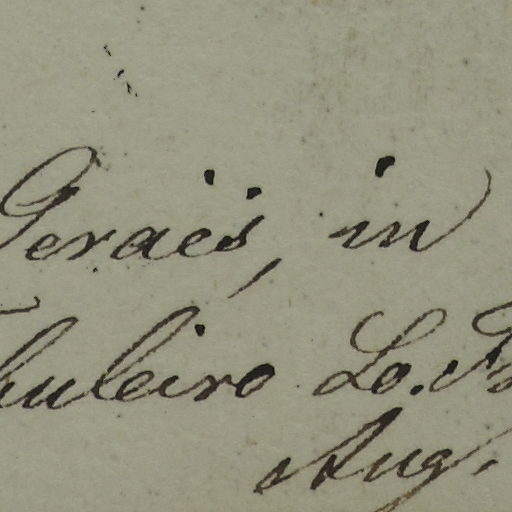 Geraës, in
huleiro Lo.
Aug.